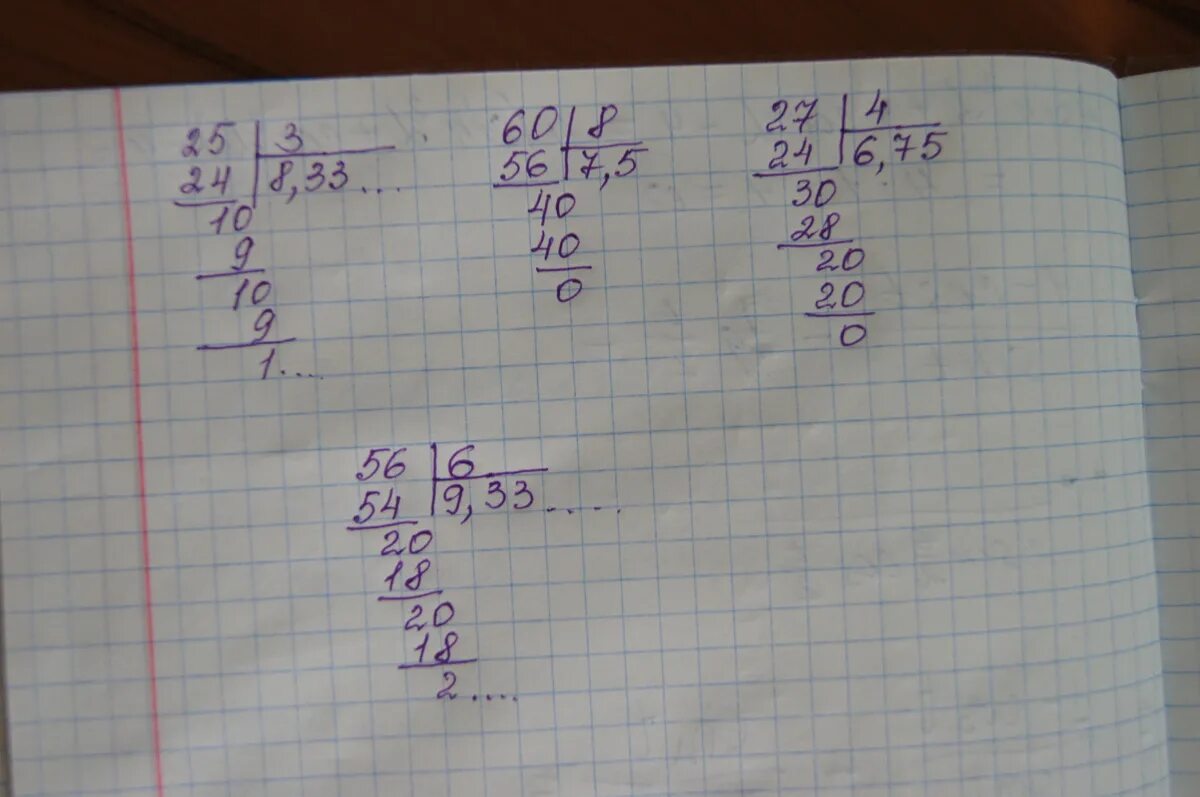 25 3
24 8,33...
10
9
10
9
1....
60 8
56 7,5
40
40
0
27 4
24 6,75
30
28
20
20
0
56 6
54 9,33.....
20
18
20
18
2....